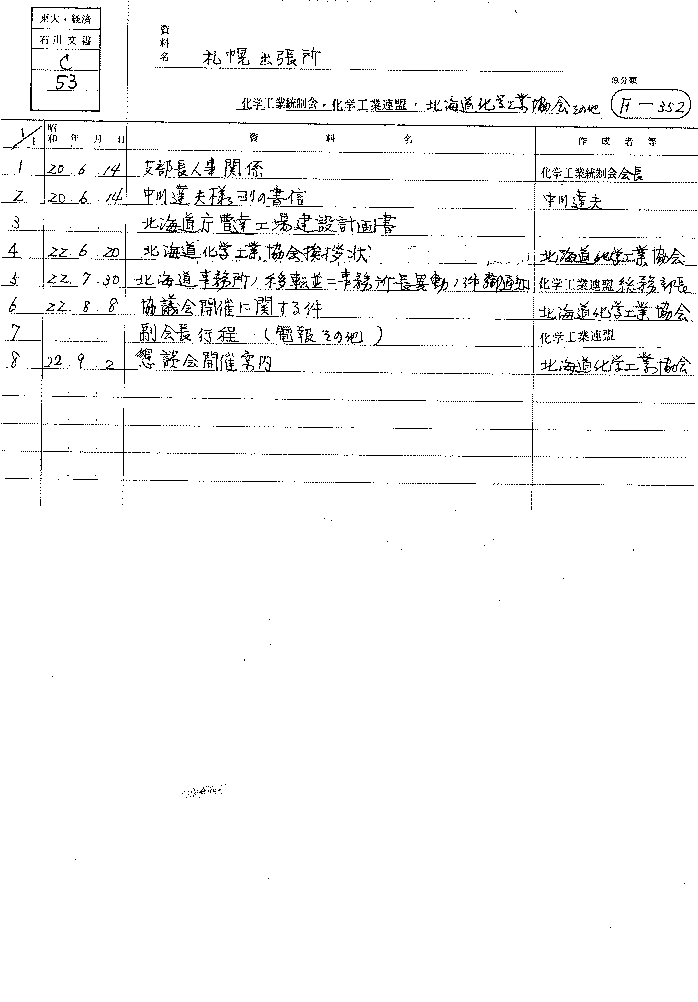 東大・経済
石川文書
C
53
資料名 札幌出張所
原分類
化学工業統制会・化学工業連盟・北海道化学工業協会その他 H-352
1/1 昭和 年 月 日 資料名 作成者等
1 20 6 14 支部長人事関係 化学工業統制会会長
2 20. 6. 14 中川達夫様ヨリの書信 中川達夫
3 北海道庁電業工場建設計画書
4 22 6 20 北海道化学工業協会挨拶状 北海道化学工業協会
5 22. 7. 30 北海道事務所ノ移転並ニ事務所長異動ノ件御通知 化学工業連盟総務部長
6 22. 8. 8 協議会開催に関する件 北海道化学工業協会
7 副会長行程 (電報その他) 化学工業連盟
8 22 9 2 懇談会開催案内 北海道化学工業協会